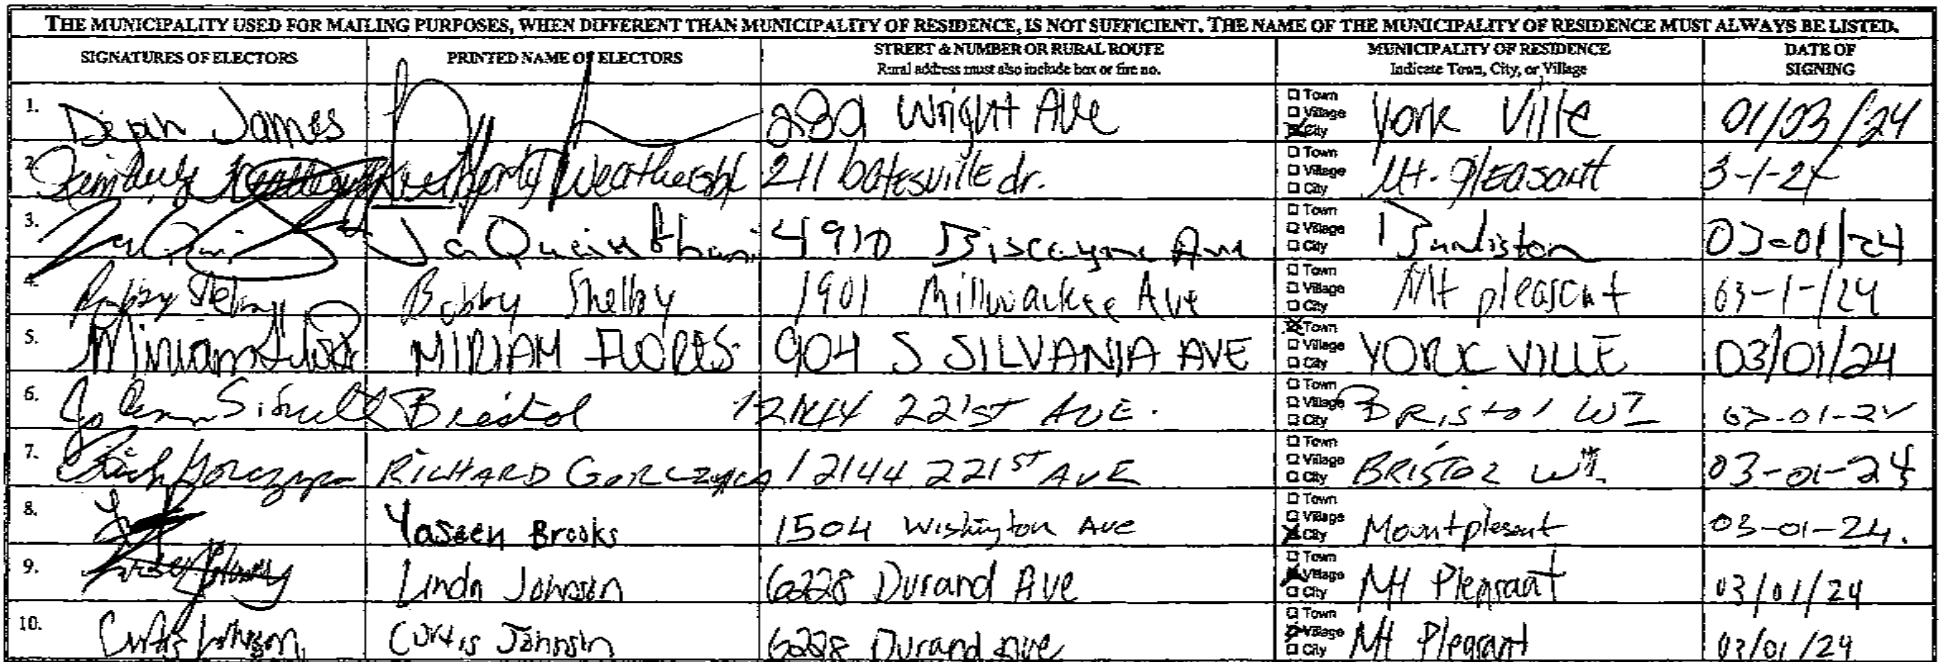 THE MUNICIPALITY USED FOR MAILING PURPOSES, WHEN DIFFERENT THAN MUNICIPALITY OF RESIDENCE, IS NOT SUFFICIENT. THE NAME OF THE MUNICIPALITY OF RESIDENCE MUST ALWAYS BE LISTED.
SIGNATURES OF ELECTORS PRINTED NAME OF ELECTORS STREET & NUMBER OR RURAL ROUTE MUNICIPALITY OF RESIDENCE DATE OF
Rural address must also include box or fire no. Indicate Town, City, or Village SIGNING
1. James Wright Ave Town Village City York Ville 01/03/24
2. 211 batesville dr. Town Village City Mt. Pleasant 3-1-24
3. 4910 Biscayne Ave Town Village City 03-01/24
4. Bobby Shelby Bobby Shelby 1901 Millwaukee Ave Town Village City Mt pleasant 03-1-/24
5. Miriam MIRIAM FLORES 904 S SILVANIA AVE Town Village City YORK VILLE 03/01/24
6. Bristol 12144 221ST AVE. Town Village City BRISTOL WI 03-01-24
7. Rich Gorczyca RICHARD GORCZYCA 12144 221ST AVE Town Village City BRISTOL WI. 03-01-24
8. Yaseen Brooks 1504 Wishington Ave Town Village City Mountplesent 03-01-24.
9. Linda Johnson 6228 Durand Ave Town Village City Mt Pleasant 03/01/24
10. Curtis Johnson Curtis Johnson 6228 Durand Ave Town Village City Mt Pleasant 03/01/24